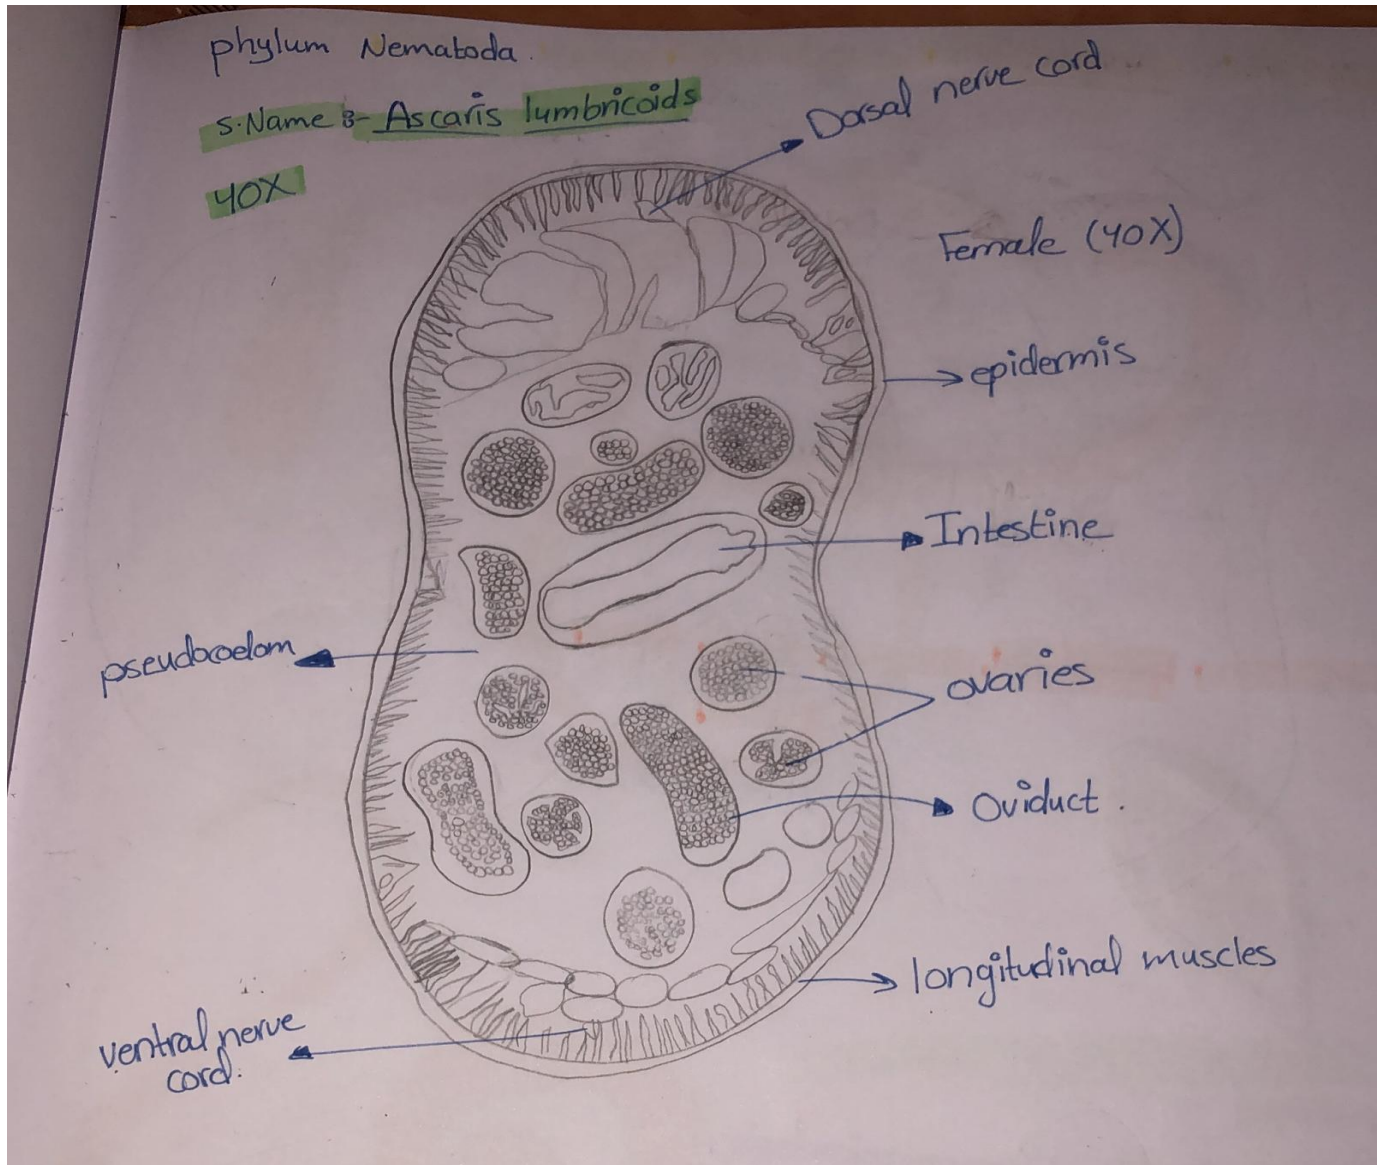 phylum Nematoda.
s.Name :- Ascaris lumbricoids
40X
Dorsal nerve cord
Female (40X)
epidermis
Intestine
pseudocoelom
ovaries
Oviduct.
longitudinal muscles
ventral nerve
cord.